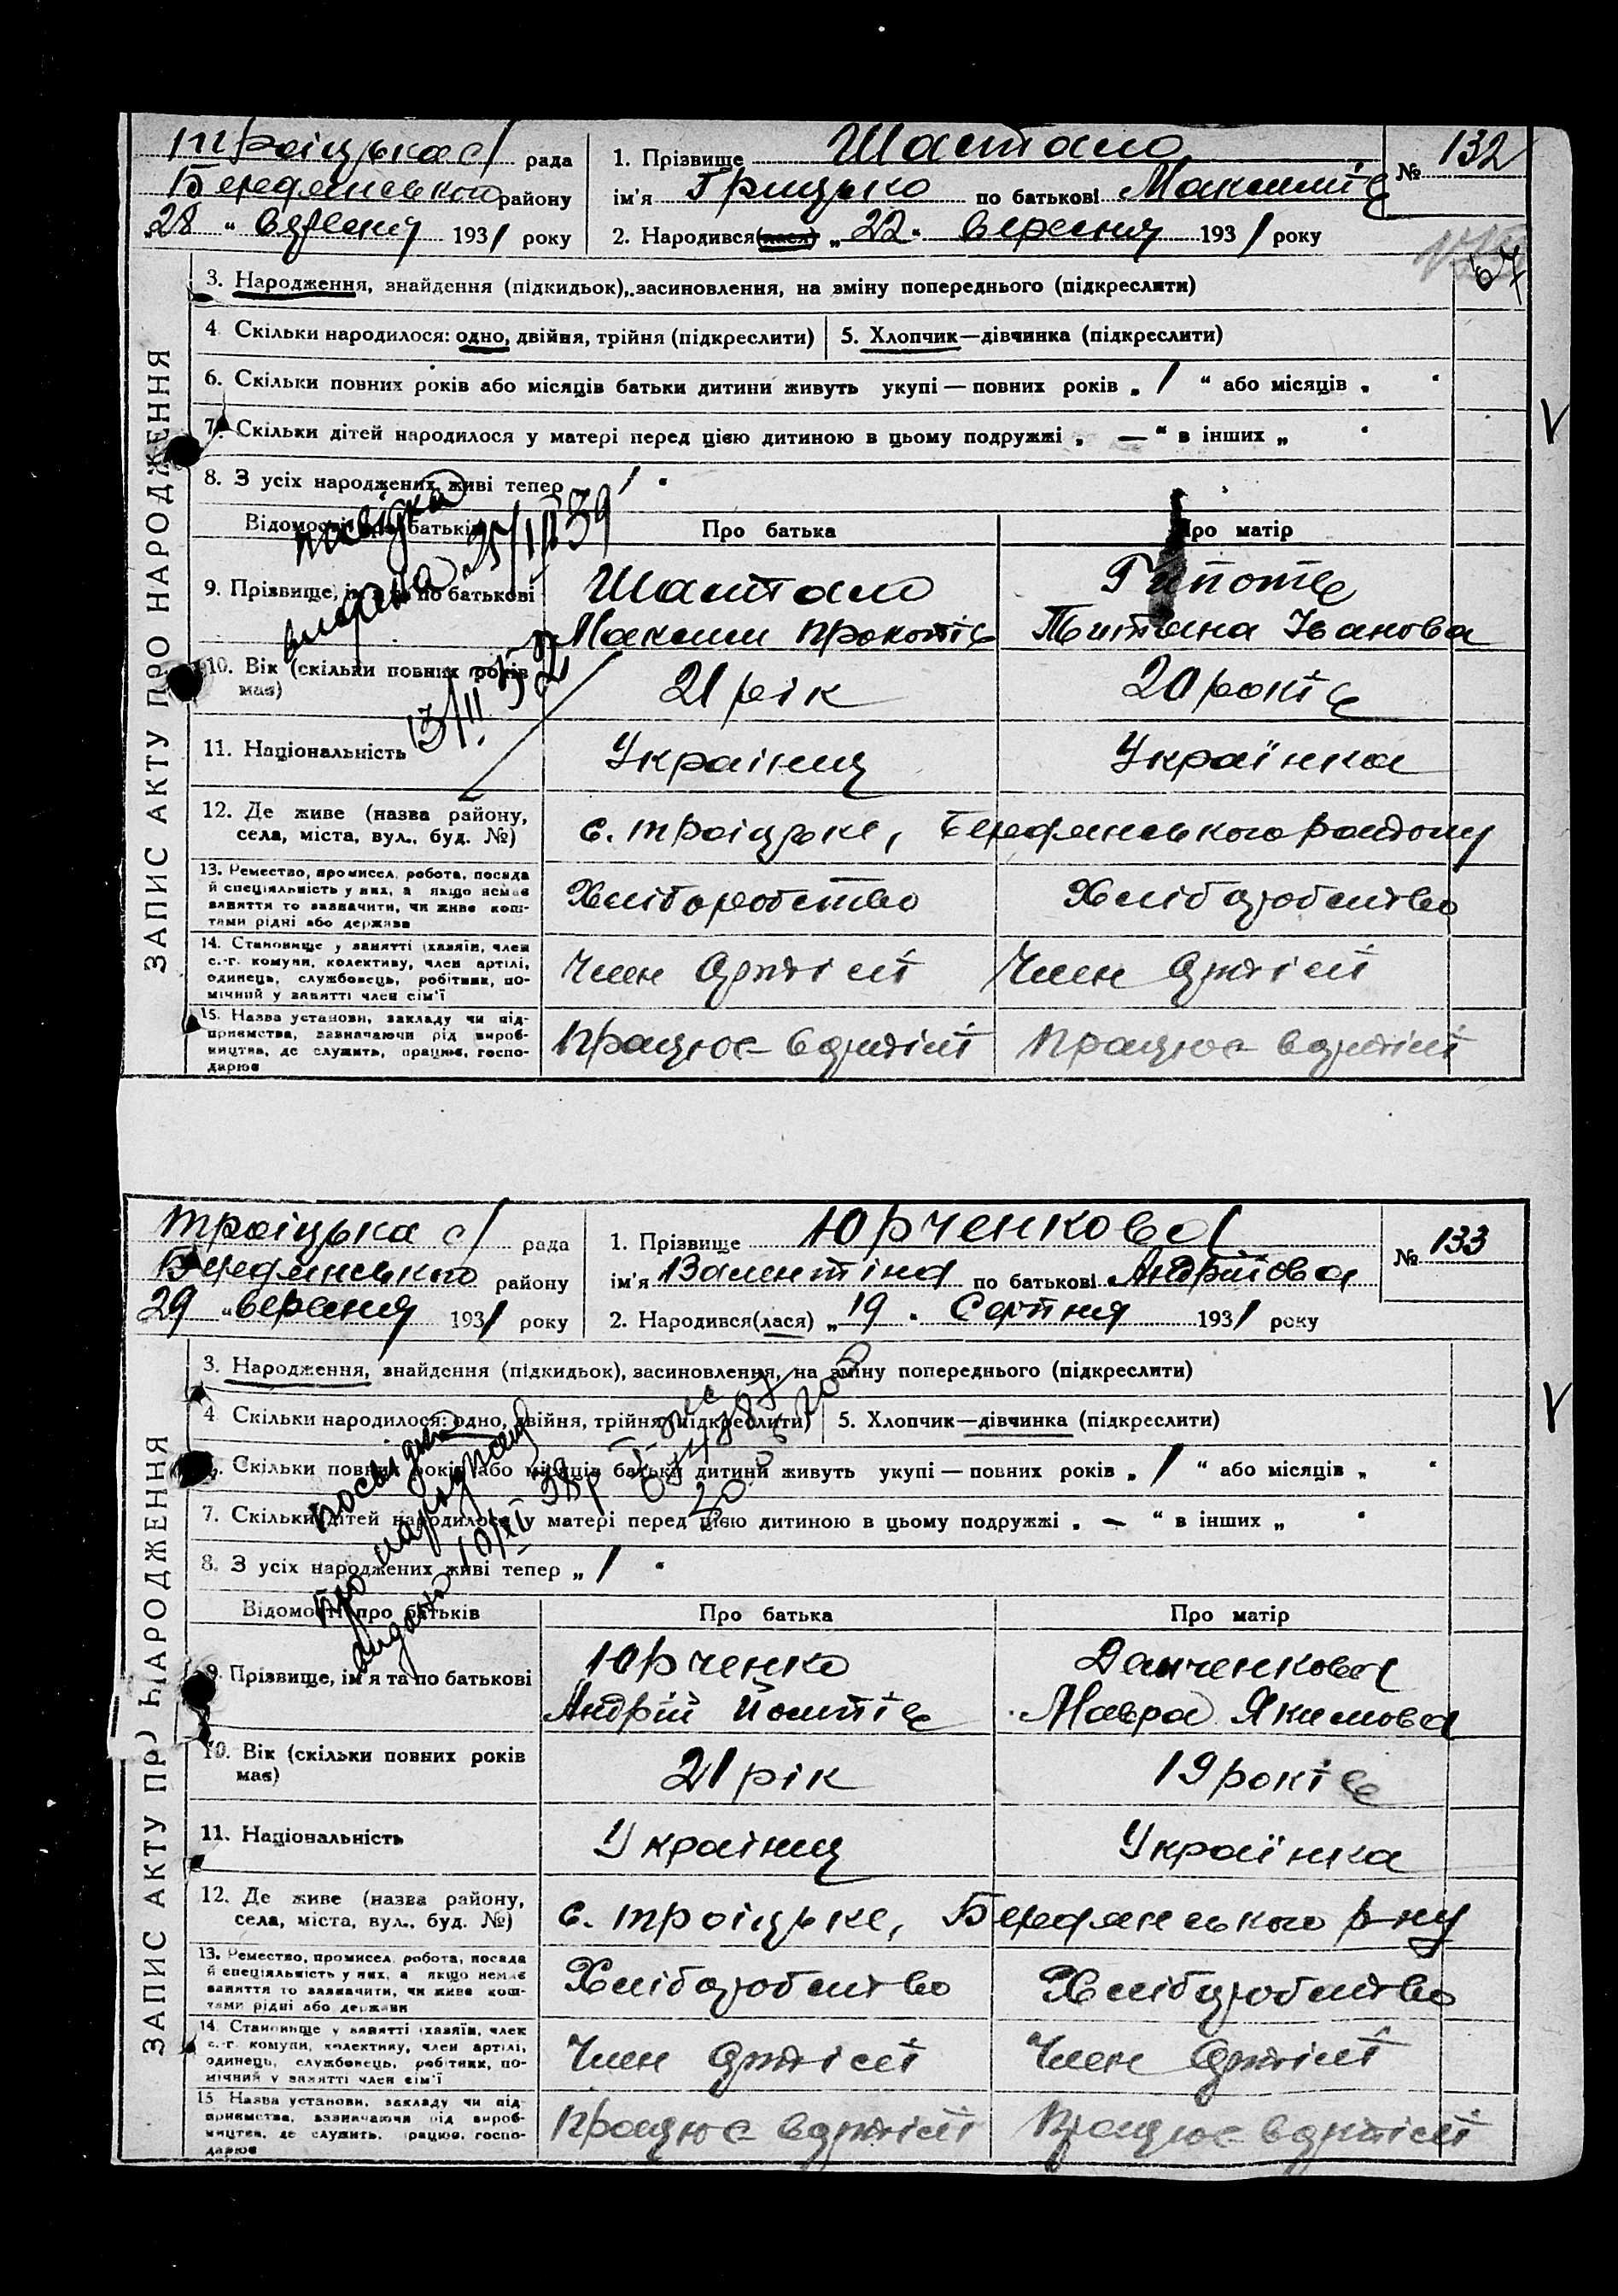 Троіцька с/ рада
Бердянського району
28 " вересня 1931 року
1. Прізвище Шаптало
ім'я Грицько по батькові Максимів
2. Народився(лася) „ 22 " вересня 1931 року
№ 132
3. Народження, знайдення (підкидьок), засиновлення, на зміну попереднього (підкреслити)
4 Скільки народилося: одно, двійня, трійня (підкреслити) 5. Хлопчик—дівчинка (підкреслити)
6. Скільки повних років або місяців батьки дитини живуть укупі — повних років „ 1 “ або місяців „ “
7. Скільки дітей народилося у матері перед цією дитиною в цьому подружжі „ — “ в інших „ “
8. З усіх народжених живі тепер 1 “
посвідка
видана 25/III 39
13/II
Відомості про батьків Про батька Про матір
9. Прізвище, ім'я та по батькові Шаптало
Максим Прокопів Титяна Іванова
10. Вік (скільки повних років має) 21 рік 20 років
11. Національність Украінец Українка
12. Де живе (назва району,
села, міста, вул., буд. №) с. Троіцьке, Бердянського району
13. Ремество, промисел, робота, посада
й спеціяльність у них, а якщо немає
заняття то зазначити, чи живе кош-
тами рідні або держави
Хліборобство Хліборобство
14. Становище у занятті (хазяїн, член
с.-г. комуни, колективу, член артілі,
одинець, службовець, робітник, по-
мічний у занятті член сім'ї
Член Артілі Член Артілі
15. Назва установи, закладу чи під-
приємства, зазначаючи рід вироб-
ництва, де служить, працює, госпо-
дарює
Працює в артілі Працює в артілі
ЗАПИС АКТУ ПРО НАРОДЖЕННЯ
Троіцька с/ рада
Бердянського району
29 " вересня 1931 року
1. Прізвище Юрченкова
ім'я Валентіна по батькові Андрійова
2. Народився(лася) „ 19 " Серпня 1931 року
№ 133
3. Народження, знайдення (підкидьок), засиновлення, на зміну попереднього (підкреслити)
4 Скільки народилося: одно, двійня, трійня (підкреслити) 5. Хлопчик—дівчинка (підкреслити)
6. Скільки повних років або місяців батьки дитини живуть укупі — повних років „ 1 “ або місяців „ “
7. Скільки дітей народилося у матері перед цією дитиною в цьому подружжі „ — “ в інших „ “
8. З усіх народжених живі тепер „ 1 “
посвідка
про народження
видана 10/II 39р
Відомості про батьків Про батька Про матір
9. Прізвище, ім'я та по батькові Юрченко Данченкова
Андрій Мавра Якимова
10. Вік (скільки повних років має) 21 рік 19 років
11. Національність Украінец Українка
12. Де живе (назва району,
села, міста, вул., буд. №) с. Троіцьке, Бердянського р-ну
13. Ремество, промисел, робота, посада
й спеціяльність у них, а якщо немає
заняття то зазначити, чи живе кош-
тами рідні або держави
Хліборобство Хліборобство
14. Становище у занятті (хазяїн, член
с.-г. комуни, колективу, член артілі,
одинець, службовець, робітник, по-
мічний у занятті член сім'ї
Член Артілі Член Артілі
15 Назва установи, закладу чи під-
приємства, зазначаючи рід вироб-
ництва, де служить, працює, госпо-
дарює
Працює в артілі Працює в артілі
ЗАПИС АКТУ ПРО НАРОДЖЕННЯ